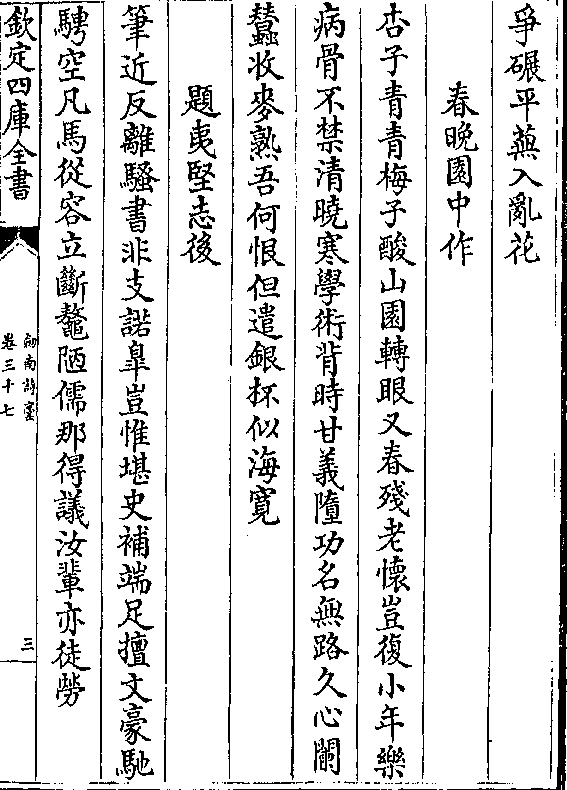 爭碾平蕪入亂花
春晚園中作
杏子青青梅子酸山園轉眼又春殘老懷豈復小年樂
病骨不禁清曉寒學術背時甘義墮功名無路久心闌
蠶收麥熟吾何恨但遣銀杯似海寛
題夷堅志後
筆近反離騷書非支諾臯豈惟堪史補端足擅文豪馳
騁空凡馬從容立斷鼇陋儒那得議汝輩亦徒勞
欽定四庫全書
劒南詩藁
卷三十七
三